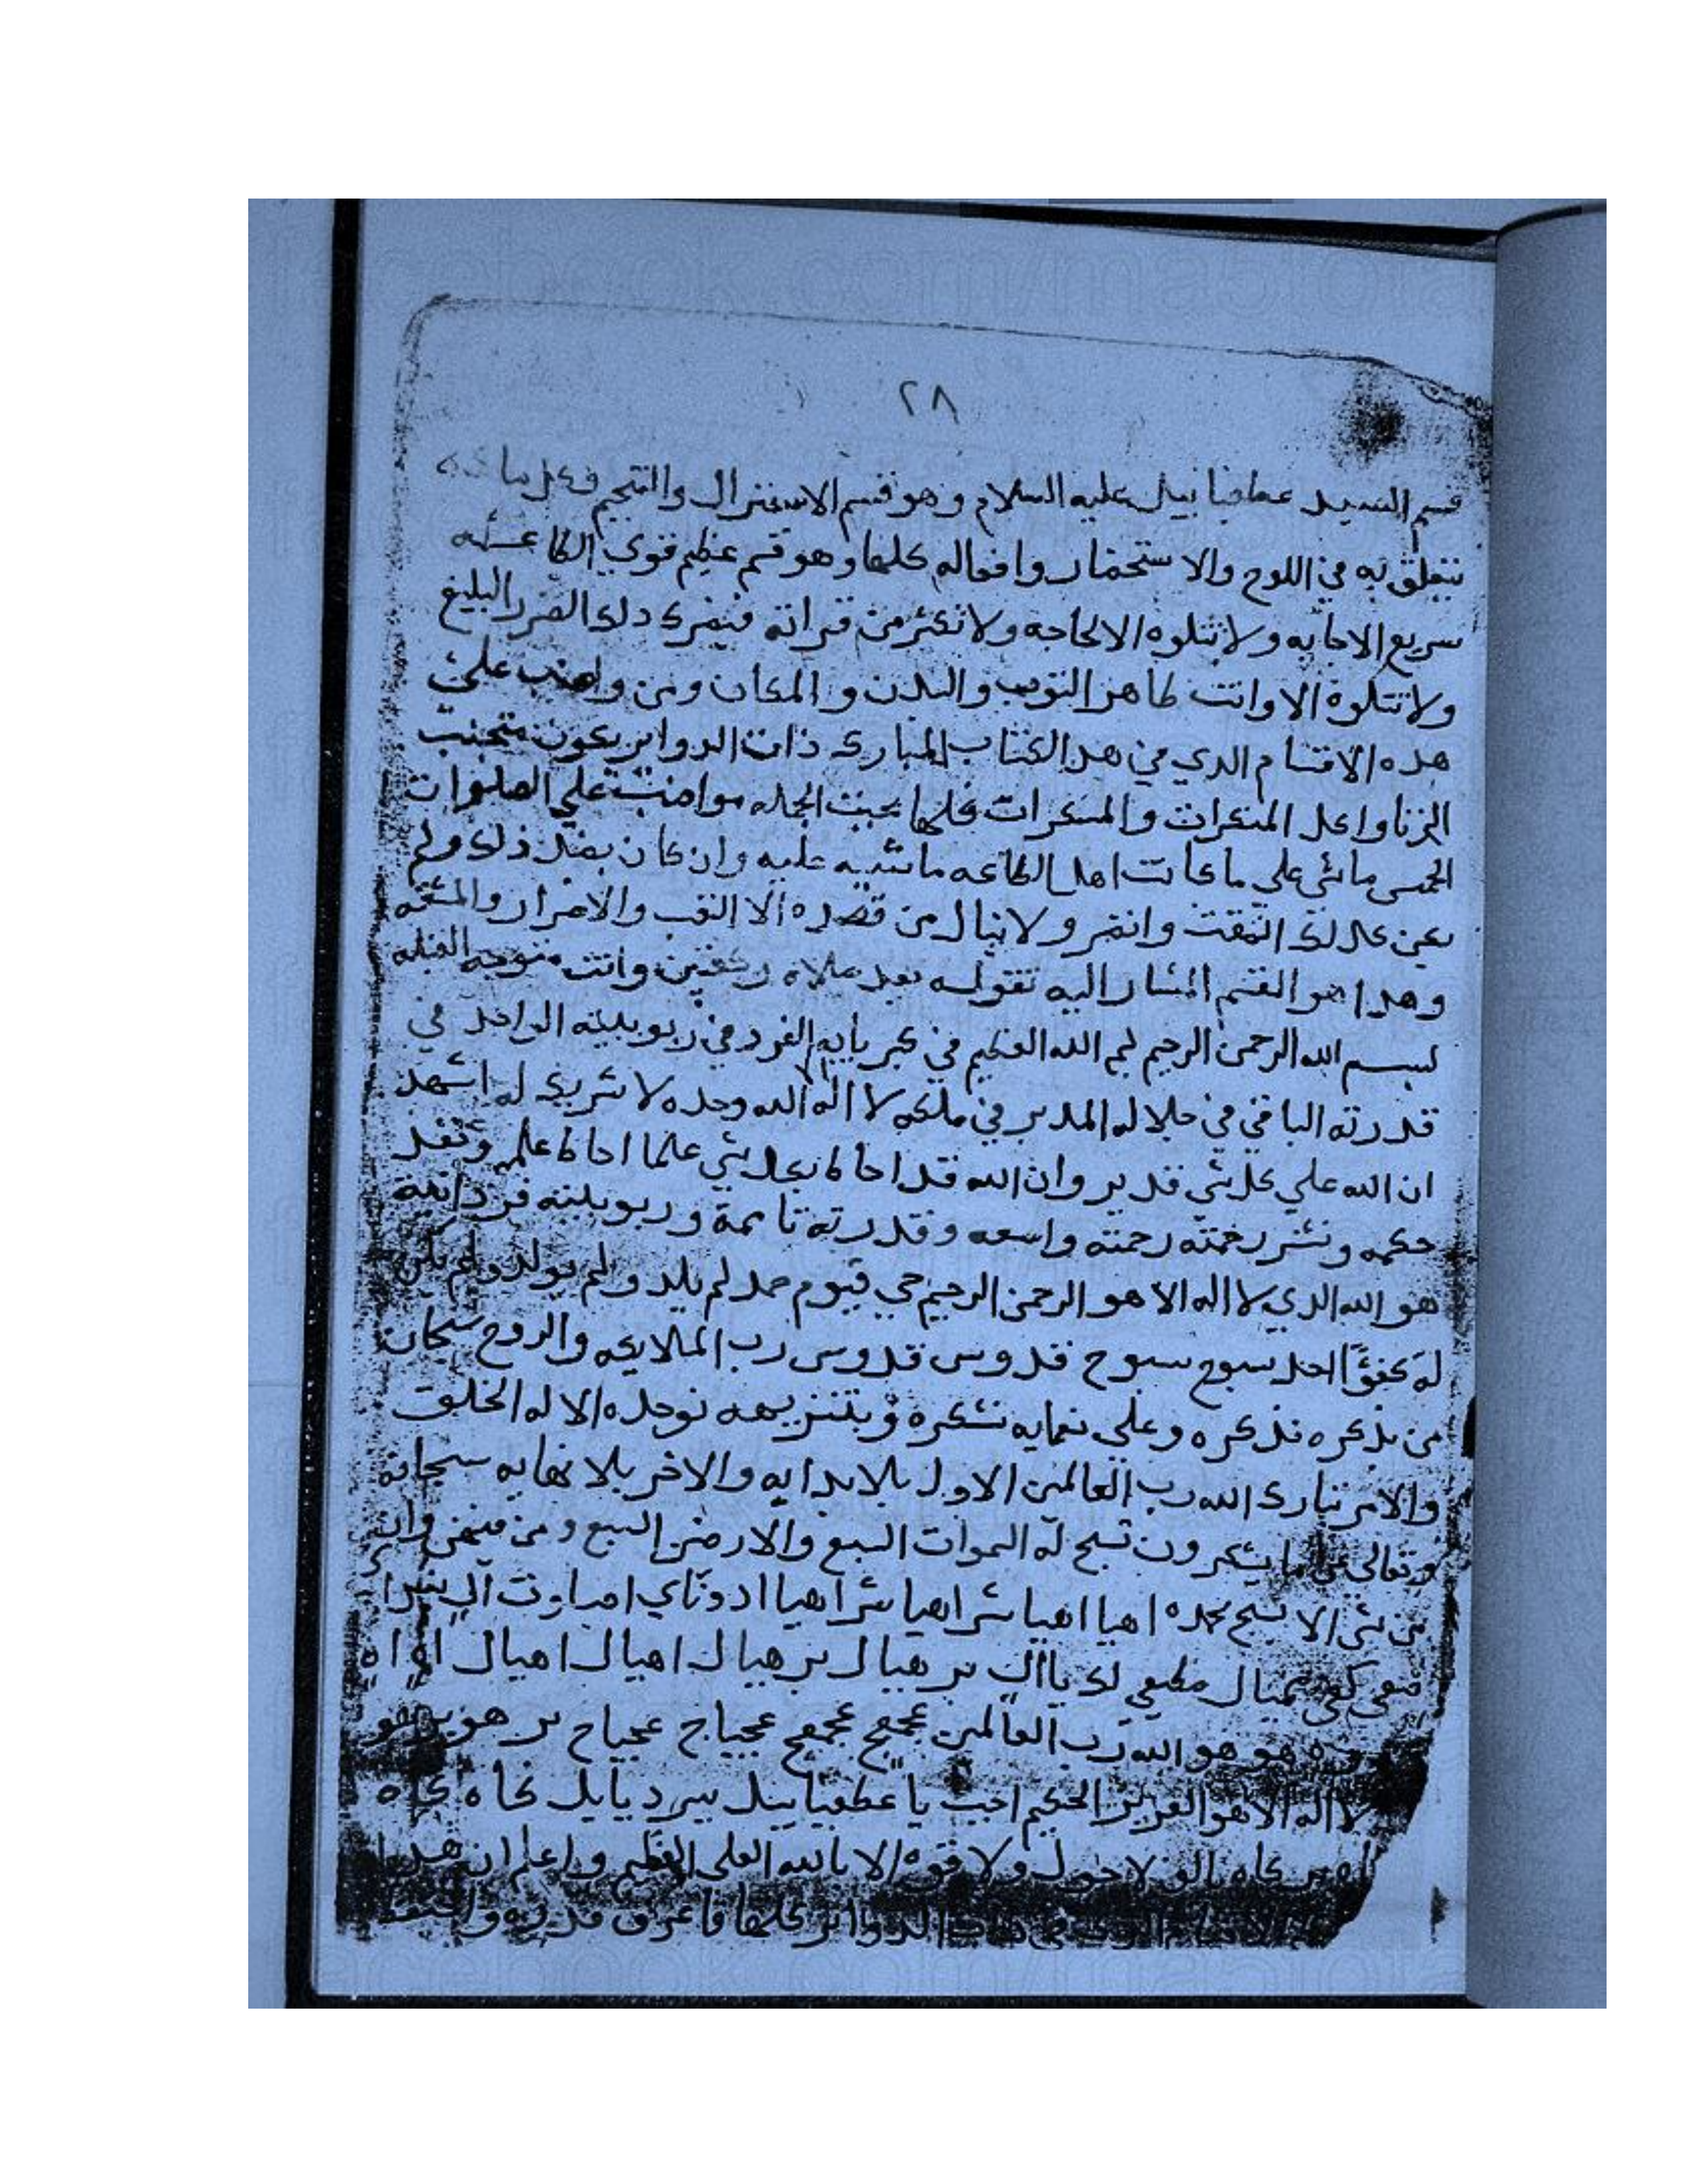 ٢٨
قسم السيد عطفيا ييل عليه السلام وهو قسم الاستنزال والتنجيم وكل ما
يتعلق به في اللوح والاستحضار وافعاله كلها وهو قسم عظيم قوي الطاعـه
سريع الاجابه ولا تتلوه الا لحاجه ولا تكثر من قراته فيضرك دلك الضرر البليغ
ولا تتلوه الا وانت طاهر التوب والبدن و المكان ومن واضب علي
هده الاقسام الدي في هدا الكتاب المبارك ذات الدواير يكون متجنب
الزنا واكل المنكرات والمسكرات كلها بحيت الجله مواضب علي الصلوات
الخمس ماشي علي ما كانت اهل الطاعه ماشيه عليه وان كان بضد ذلك ولم
يكن كدلك انمقت وانضر ولا ينال من قصده الا التعب والاضرار والمشقه
وهدا هو القسم المشار اليه تقولـه بعد صلاة ركعتين وانت متوجه القبله
بسـم الله الرحمن الرحيم بسم الله العظيم في كبريايه الفرد في ربوبيته الواحد في
قدرته الباقي في جلاله المدبر في ملكه لا اله الا الله وحده لا شريك له اشهد
ان الله علي كل شي قدير وان الله قد احاط بكل شي علما احاط علمه ونفد
حكمه ونشر رحمته رحمته واسعه وقدرته تامة وربوبيته فردانية
هو الله الدي لا اله الا هو الرحمن الرحيم حي قيوم صمد لم يلد ولم يولد ولم يكن
له كفؤا احد سبوح سبوح قدوس قدوس رب الملايكه والروح سبحان
من بذكره نذكره وعلي نعمايه نشكره وبتنزيهه نوحده الا له الخلق
والامر تبارك الله رب العالمين الاول بلا بدايه والاخر بلا نهايه سبحانه
وتعالي عن ما يشكرون تسبح له السموات السبع والارضن السبع ومن فيهن وان
من شي الا يسبح بحمده اهيا اهيا شراهيا شراهيا ادوناي اصباوت ال
كفي ميال مطيعي لك يا ال بر هيال بر هيال اهيال اهيال اه اه
هو هو الله رب العالمين عجمج عجمج عجياج عجياج بر هو بر هو
لا اله الا هو العزيز الحكيم اجب يا عطفيا ييل بير ديايل كاه كاه
كاه الو لا حول ولا قوه الا بالله العلي العظيم واعلم ان هدا
الدواير كلها فاعرف قدره واحتفظ